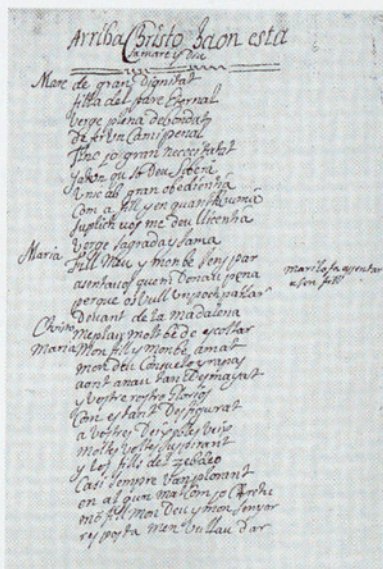 Arriba Christo haon esta
sa mare y diu
Mare de gran dignitat
filla del pare Eternal
verge plena de bondat
De fer un Cami penal
Tinc jo gran necesitat
y ab gran obediensia
Com a fill y en quant humá
suplich vos me deu llicensia
Verge sagrada
Maria Fill Meu y mon be
asentauos quem Donau pena
perque os vull un poch parlar
Devant de la madalena
maria fa asentar
a son fill
Christo Me plau molt be de escoltar
Maria Mon fill y mon be amat
mon deu Consuelo y
aont anau tan Desmayat
y vostre rostro glorios
Com es tant Desfigurat
a vostres Dexebles veix
moltes voltes suspirant
y los fills del zebedeo
Casi sempre van plorant
mon Deu y mon senyor
resposta men vullau dar